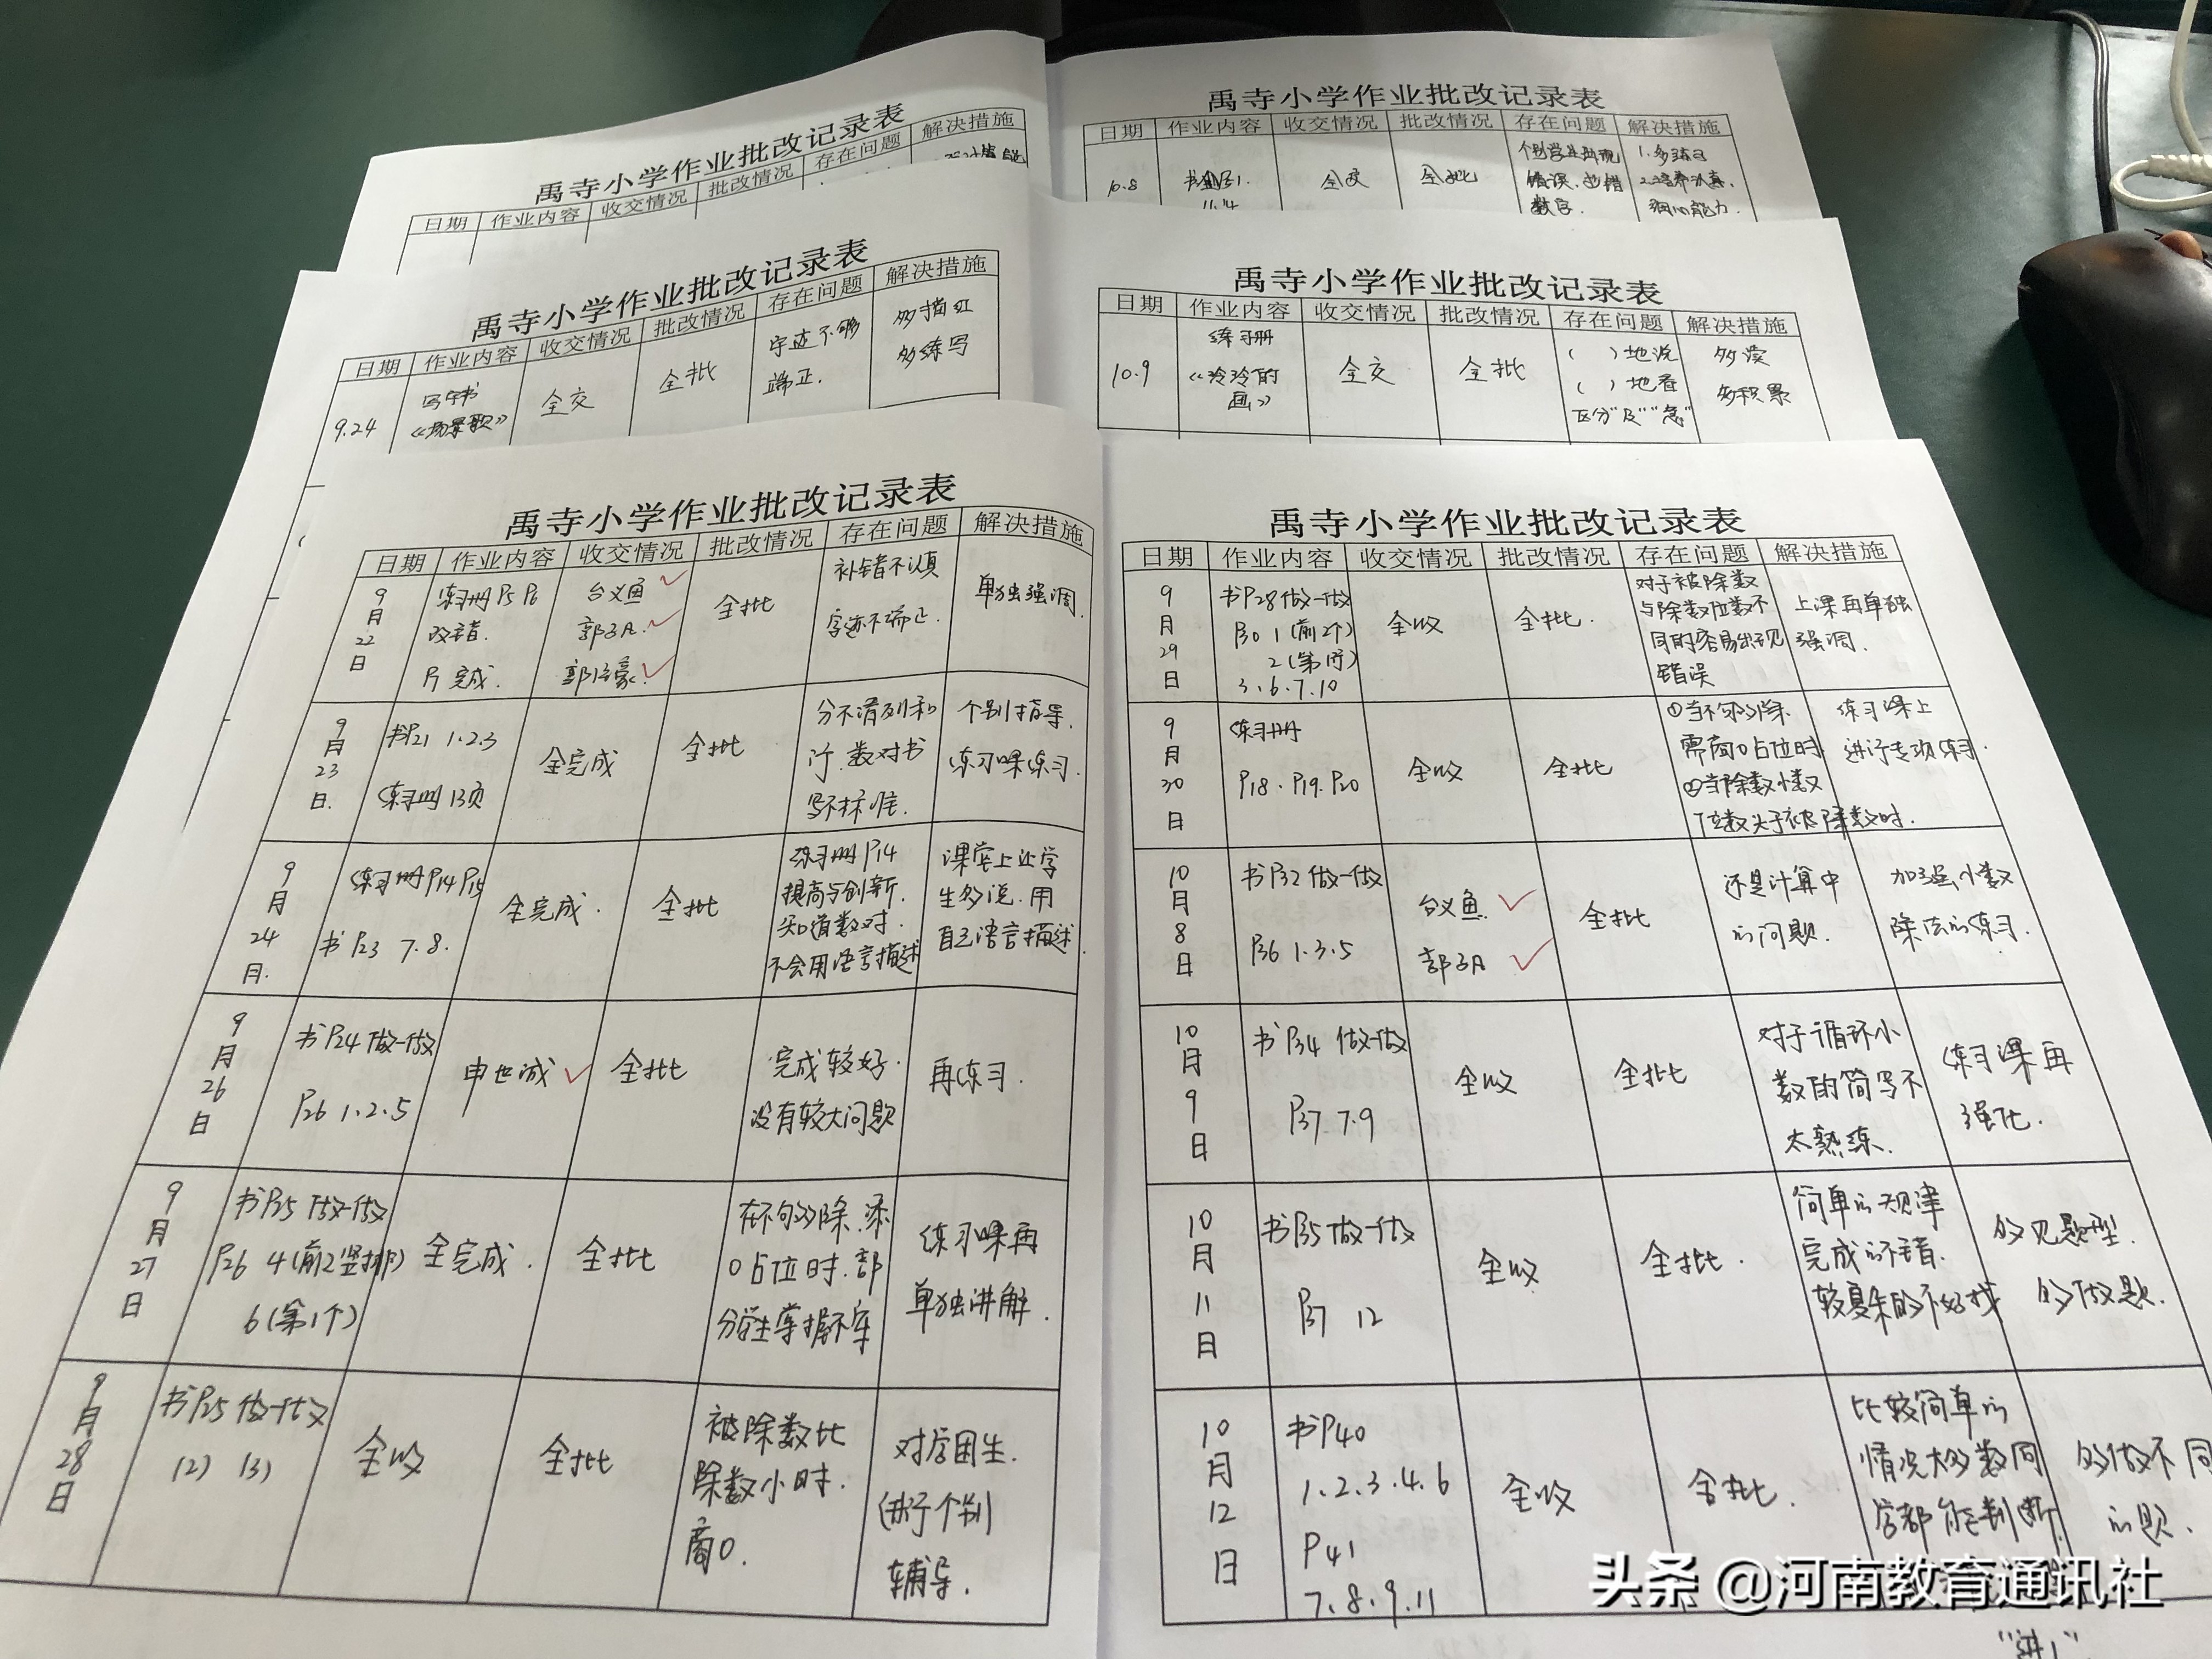 禹寺小学作业批改记录表
日期 作业内容 收交情况 批改情况 存在问题 解决措施
禹寺小学作业批改记录表
日期 作业内容 收交情况 批改情况 存在问题 解决措施
10.8 全交 全批
错误
数字.
1.多练习
2.培养认真、
细心能力.
禹寺小学作业批改记录表
日期 作业内容 收交情况 批改情况 存在问题 解决措施
9.24
写字书
《场景歌》
全交
全批
字迹不够
端正.
多描红
多练写
禹寺小学作业批改记录表
日期 作业内容 收交情况 批改情况 存在问题 解决措施
10.9
练习册
《玲玲的
画》
全交
全批
( )地说
( )地看
区分"及""急"
多读
多积累
禹寺小学作业批改记录表
日期 作业内容 收交情况 批改情况 存在问题 解决措施
9月22日
练习册P5 P6
改错.
完成.
台义鱼
全批
补错不认真
字迹不端正.
单独强调.
9月23日.
书P21 1.2.3
练习册13页
全完成
全批
分不清列和
行.数对书
写不标准.
个别指导.
练习课练习.
9月24月.
练习册P14 P15
书P23 7.8.
全完成.
全批
练习册P14
提高与创新.
知道数对.
不会用语言描述
课堂上让学
生多说.用
自己语言描述.
9月26日
书P24做一做
P26 1.2.5
申世诚
全批
完成较好.
没有较大问题
再练习.
9月27日
书P35做一做
P26 4(前2竖排)
6(第1个)
全完成.
全批
在不够除.添
0占位时.部
分学生掌握不牢
练习课再
单独讲解.
9月28日
书P25做一做
(2) (3)
全收
全批
被除数比
除数小时.
商0.
对学困生.
进行个别
辅导.
禹寺小学作业批改记录表
日期 作业内容 收交情况 批改情况 存在问题 解决措施
9月29日
书P28做一做
P30 1(前2个)
2(第1行)
3.6.7.10
全收
全批.
对于被除数
与除数位数不
同的容易出现
错误
上课再单独
强调.
9月30日
练习册
P18.P19.P20
全收
全批
①当不够除.
需商0占位时
②当除数小数
位数大于被除数时.
练习课上
进行专项练习.
10月8日
书P32做一做
P36 1.3.5
台义鱼
全批
还是计算中
的问题.
加强小数
除法的练习.
10月9日
书P34做一做
P37 7.9
全收
全批
对于循环小
数的简写不
太熟练.
练习课再
强化.
10月11日
书P35做一做
P37 12
全收
全批.
简单的规律
完成的不错.
较复杂的不好找
多见题型.
多做题.
10月12日
书P40
1.2.3.4.6
P41
7.8.9.11
全收
全批.
比较简单的
情况大多数同
学都能判断.
多做不同
的题.
头条 @河南教育通讯社